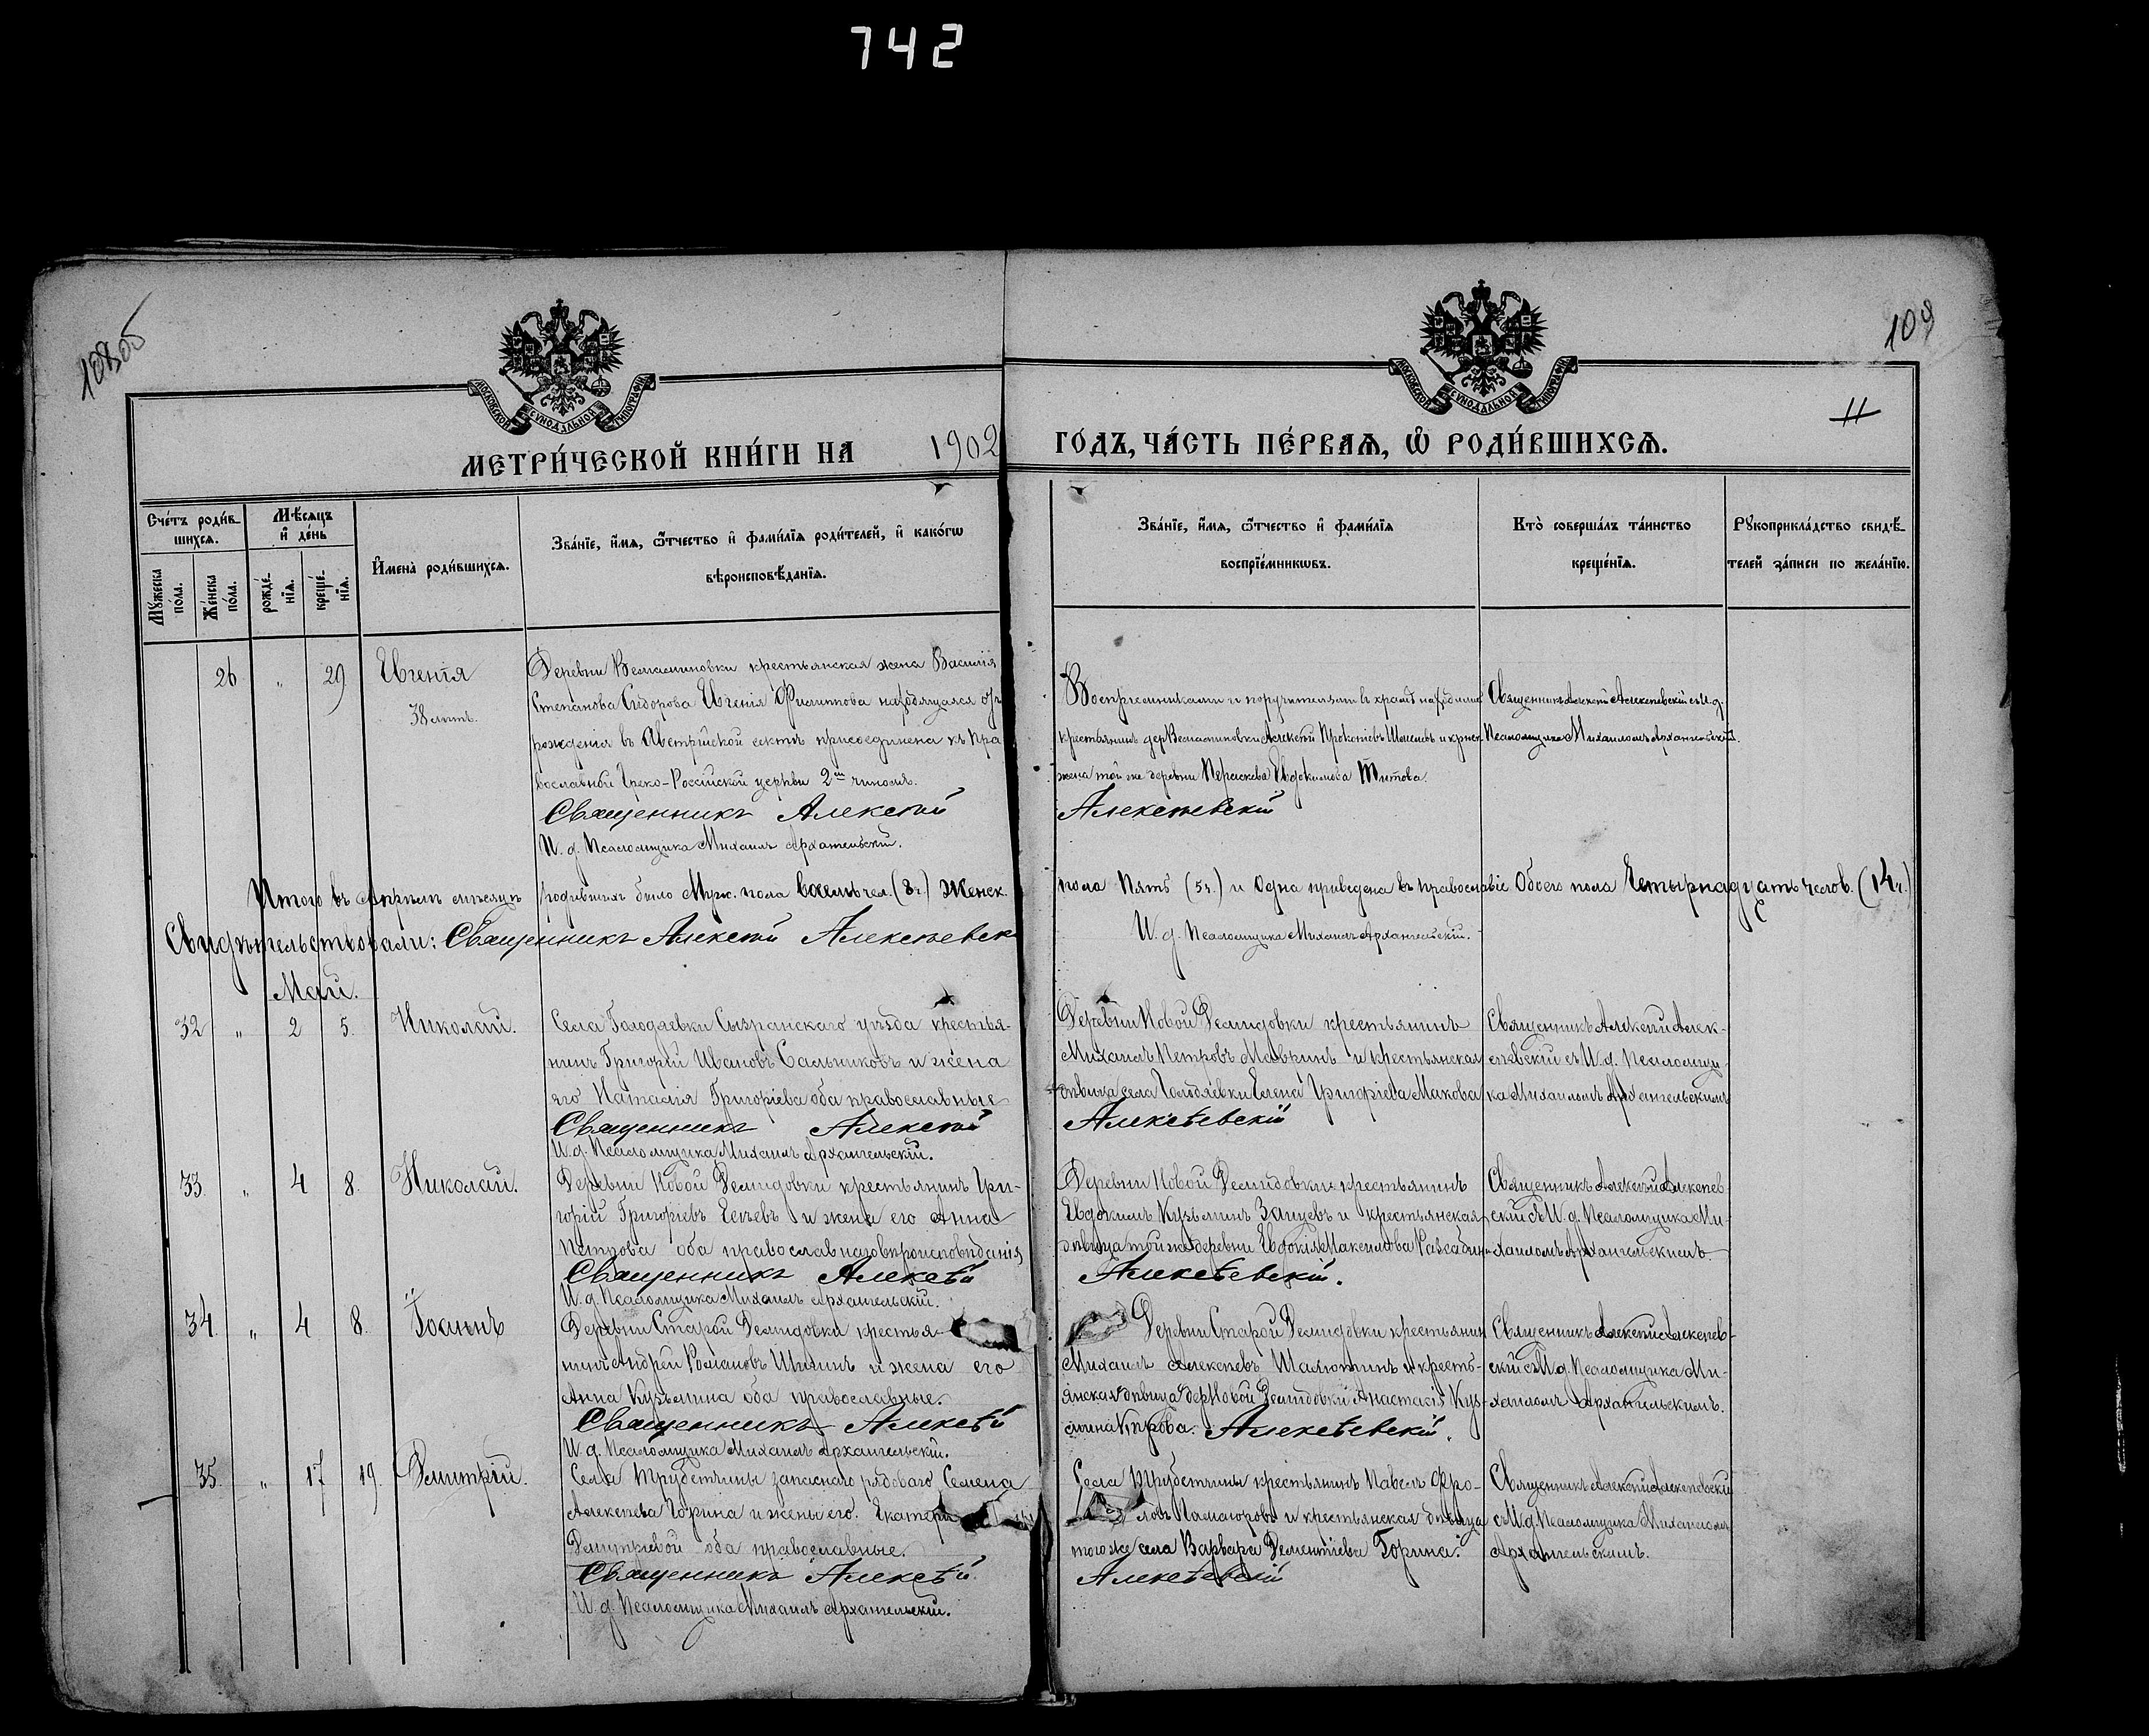 742
108об
109
11
МОСКОВСКОЙ СѴНОДАЛЬНОЙ ТИПОГРАФІИ
МОСКОВСКОЙ СѴНОДАЛЬНОЙ ТИПОГРАФІИ
МЕТРИ́ЧЕСКОЙ КНИ́ГИ НА 1902 ГО́ДЪ, ЧА́СТЬ ПЕ́РВАѦ, Ѽ РОДИ́ВШИХСѦ.
Сче́тъ роди́в-
шихсѧ.
Мꙋ́жеска
по́ла.
Же́нска
по́ла.
Мѣ́сѧцъ
и҆ де́нь
рожде́-
нїѧ.
креще́-
нїѧ.
И҆мена̀ роди́вшихсѧ.
Зва́нїе, и҆́мѧ, ѻ҆́тчество и҆ фами́лїѧ роди́телей, и҆ како́гѡ
вѣроисповѣ́данїѧ.
Зва́нїе, и҆́мѧ, ѻ҆́тчество и҆ фами́лїѧ
воспрїе́мникѡвъ.
Кто̀ соверша́лъ та́инство
креще́нїѧ.
Рꙋкоприкла́дство свидѣ́-
телей за́писи по жела́нїю.
26 " 29 Евгенія
38 лѣтъ.
Деревни Вельяминовки крестьянская жена Василія
Степанова Сидорова Евгенія Филиппова находящаяся отъ
рожденія въ Австрійской сектѣ присоединена къ пра
вославной Греко-Россійской церкви 2мъ чиномъ.
Священникъ Алексѣй
И. д. Псаломщика Михаилъ Архангельскій.
Воспріемниками и поручителями въ храмѣ находились
крестьянинъ дер Вельяминовки Алексѣй Прокопіевъ и крест.
жена той же деревни Параскева Евдокимова Титова.
Алексѣевскій
Священникъ Алексѣй Алексѣевскій съ И. д.
Псаломщика Михаиломъ Архангельскимъ.
Итого въ Апрѣлѣ мѣсяцѣ родившихъ было Муж. пола восемь чел. (8 ч.) Женск. пола Пять (5 ч.) и Одна приведена въ православіе Обоего пола Четырнадцать челов. (14 ч.)
Свидѣтельствовали: Священникъ Алексѣй Алексѣевск
И. д. Псаломщика Михаилъ Архангельскій.
Май.
32 " 2 5. Николай.
Села Голодяевки Сызранскаго уѣзда крестья-
нинъ Григорій Ивановъ Сальниковъ и жена
его Наталія Григоріева оба православные
Священникъ Алексѣй
И. д. Псаломщика Михаилъ Архангельскій.
Деревни Новой Демидовки крестьянинъ
Михаилъ Петровъ Мавринъ и крестьянская
дѣвица села Голодяевки Елена Григоріева Макова
Алексѣевскій
Священникъ Алексѣй Алек-
сѣевскій съ И. д. Псаломщи-
ка Михаиломъ Архангельскимъ
33. " 4 8. Николай.
Деревни Новой Демидовки крестьянинъ Гри-
горій Григоріевъ и жена его Анна
Петрова оба православнаго вѣроисповѣданія
Священникъ Алексѣй
И. д. Псаломщика Михаилъ Архангельскій.
Деревни Новой Демидовки крестьянинъ
Евдокимъ Кузьминъ Зайцевъ и крестьянская
дѣвица той же деревни Евдокія Максимова
Алексѣевскій.
Священникъ Алексѣй Алексѣев-
скій съ И. д. Псаломщика Ми-
хаиломъ Архангельскимъ.
34. " 4 8. Іоаннъ
Деревни Старой Демидовки крестья-
нинъ Андрей Романовъ Шининъ и жена его
Анна Кузьмина оба православные.
Священникъ Алексѣй
И. д. Псаломщика Михаилъ Архангельскій.
Деревни Старой Демидовки крестьянин
Михаилъ Алексѣевъ Шалютинъ и кресть-
янская дѣвица дер Новой Демидовки Анастасія Куз-
мина Алексѣевскій.
Священникъ Алексѣй Алексѣев-
скій съ И. д. Псаломщика Ми-
хаиломъ Архангельскимъ.
35. " 17 19. Димитрій.
Села Трубетчины запаснаго рядоваго Семена
Алексѣева Горина и жены его. Екатери
Димитріевой оба православные.
Священникъ Алексѣй
И. д. Псаломщика Михаилъ Архангельскій.
Села Трубетчины крестьянинъ Павелъ Фро-
ловъ и крестьянская дѣвица
того же села Варвара Дементіева Горина.
Алексѣевскій
Священникъ Алексѣй Алексѣевскій
съ И. д. Псаломщика Михаиломъ
Архангельскимъ.